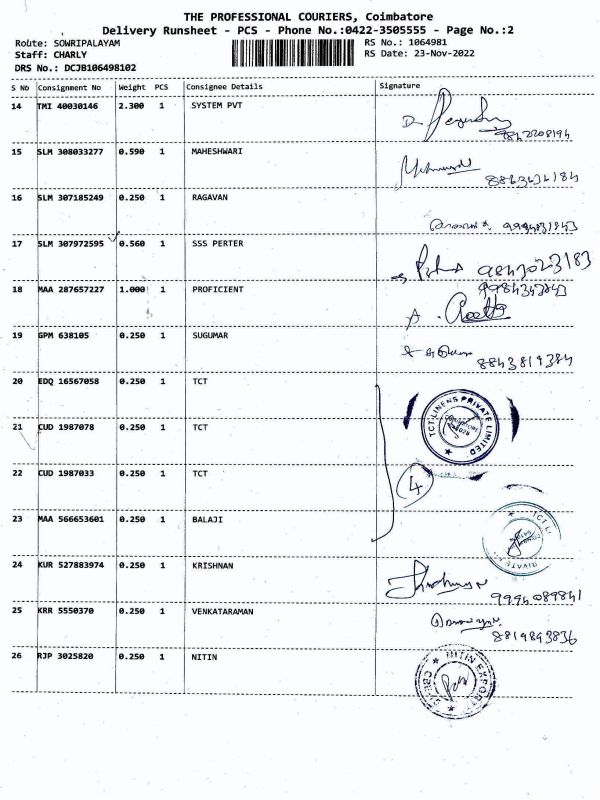 THE PROFESSIONAL COURIERS, Coimbatore
Delivery Runsheet - PCS - Phone No.:0422-3505555 - Page No.:2
Route: SOWRIPALAYAM
RS No.: 1064981
Staff: CHARLY
RS Date: 23-Nov-2022
DRS No.: DCJB106498102
S No Consignment No Weight PCS Consignee Details Signature
14 TMI 40030146 2.300 1 SYSTEM PVT
15 SLM 308033277 0.590 1 MAHESHWARI
16 SLM 307185249 0.250 1 RAGAVAN
17 SLM 307972595 0.560 1 SSS PERTER
18 MAA 287657227 1.000 1 PROFICIENT
19 GPM 638105 0.250 1 SUGUMAR
8843819384
20 EDQ 16567058 0.250 1 TCT
21 CUD 1987078 0.250 1 TCT
TCT LINENS PRIVATE LIMITED
22 CUD 1987033 0.250 1 TCT
4
23 MAA 566653601 0.250 1 BALAJI
24 KUR 527883974 0.250 1 KRISHNAN
9994089841
25 KRR 5550370 0.250 1 VENKATARAMAN
8819893836
26 RJP 3025820 0.250 1 NITIN
NITIN EXPORT